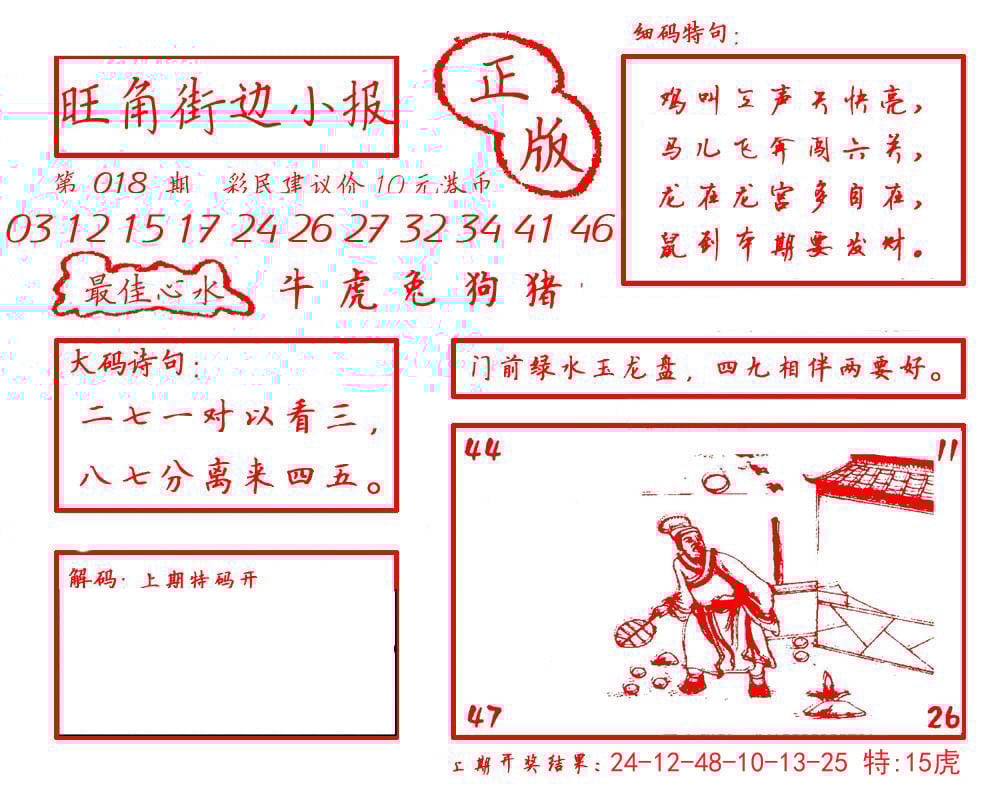 细码特句:
旺角街边小报
正
版
鸡叫三声天快亮,
马儿飞奔闯六关,
龙在龙宫多自在,
鼠到本期要发财。
第 018 期 彩民建议价10元港币
03 12 15 17 24 26 27 32 34 41 46
最佳心水 牛 虎 兔 狗 猪
大码诗句:
二七一对以看三,
八七分离来四五。
门前绿水玉龙盘,四九相伴两要好。
44 11
47 26
解码·上期特码开
上期开奖结果:24-12-48-10-13-25 特:15虎